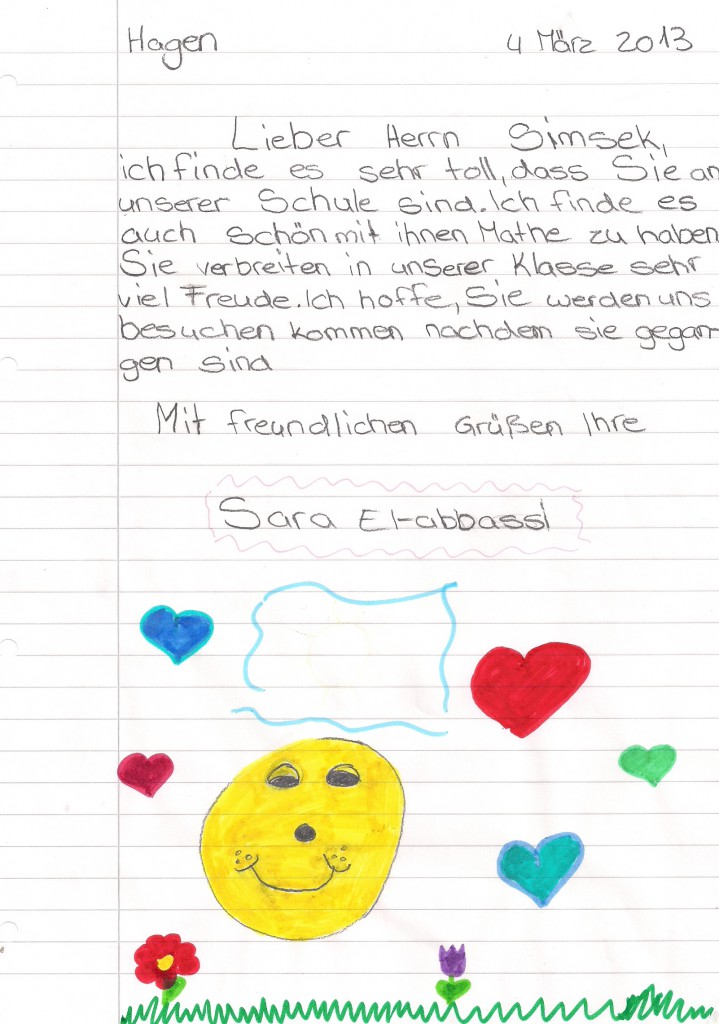 Hagen 4 März 2013
Lieber Herrn Simsek,
ich finde es sehr toll, dass Sie an
unserer Schule sind. Ich finde es
auch schön mit ihnen Mathe zu haben
Sie verbreiten in unserer Klasse sehr
viel Freude. Ich hoffe, Sie werden uns
besuchen kommen nachdem sie gegan-
gen sind
Mit freundlichen Grüßen Ihre
Sara El-abbassi